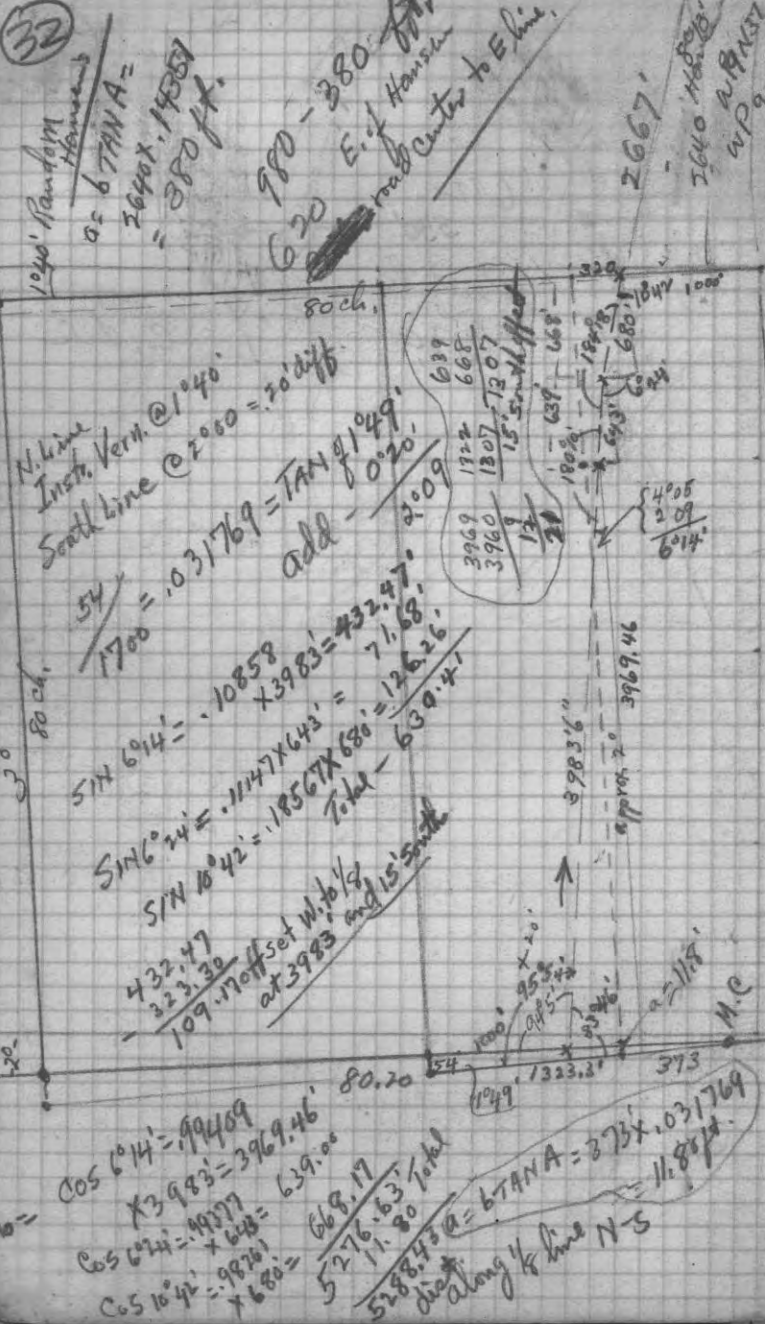 32
1°40' Random
Hansen's
a = b TAN A =
2640 X .14381
= 380 ft.
980 - 380 ft.
620 E. of Hansen
road Center to E line.
2667'
2640'
80 ch.
320
1°47'
1000'
N. Line
Instr. Vern. @ 1°40'
South Line @ 2°00 = 20' diff.
54
1700 = .031769 = TAN of 1°49'
add - 0°20-
2°09
639
668
1307
1322
1307
15' South offset
3969
3960
9
12
21
668'
639'
680'
643'
6°24'
4°05
2 09
6°14'
3°
80 ch.
SIN 6°14' = .10858
X 3983' = 432.47'
SIN 6°24' = .11147 X 643' = 71.68'
SIN 10°42' = .18567 X 680' = 126.26'
Total - 630.41
432.47
- 323.30
109.17 offset W. to 1/8
at 3983' and 15' South
3983'6"
approx. 2°
3969.46
-2°-
80.20
54
1°49'
1000'
X 20'
1323.3'
a = 11.8'
373
M.C
COS 6°14' = .99409
X 3983' = 3969.46'
COS 6°24' = .99377
X 643' = 639.00
COS 10°42' = .98261
X 680' = 668.17
5276.63' Total
11.80
5288.43
dist. along 1/8 line N-S
a = b TAN A = 373' X .031769
= 11.80 ft.